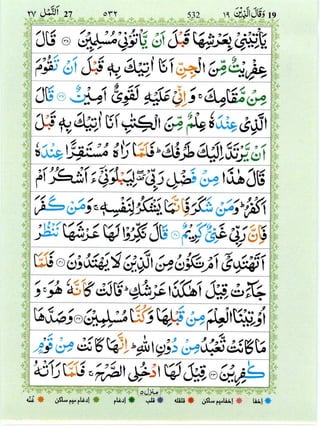 19 وَقَالَ الَّذِیْنَ ١٩ 532 ٥٣٢ 27 اَلنَّمْل ٢٧
یَاْتِیْنِیْ بِعَرْشِهَا قَبْلَ اَنْ یَّاْتُوْنِیْ مُسْلِمِیْنَ ﴿۳۸﴾ قَالَ
عِفْرِیْتٌ مِّنَ الْجِنِّ اَنَا اٰتِیْكَ بِهٖ قَبْلَ اَنْ تَقُوْمَ
مِنْ مَّقَامِكَ ۚ وَاِنِّیْ عَلَیْهِ لَقَوِیٌّ اَمِیْنٌ ﴿۳۹﴾ قَالَ
الَّذِیْ عِنْدَهٗ عِلْمٌ مِّنَ الْكِتٰبِ اَنَا اٰتِیْكَ بِهٖ قَبْلَ
اَنْ یَّرْتَدَّ اِلَیْكَ طَرْفُكَ ؕ فَلَمَّا رَاٰهُ مُسْتَقِرًّا عِنْدَهٗ
قَالَ هٰذَا مِنْ فَضْلِ رَبِّیْ ۖ لِیَبْلُوَنِیْۤ ءَاَشْكُرُ اَمْ
اَكْفُرُ ؕ وَمَنْ شَكَرَ فَاِنَّمَا یَشْكُرُ لِنَفْسِهٖ ۚ وَمَنْ كَفَرَ
فَاِنَّ رَبِّیْ غَنِیٌّ كَرِیْمٌ ﴿۴۰﴾ قَالَ نَكِّرُوْا لَهَا عَرْشَهَا نَنْظُرْ
اَتَهْتَدِیْۤ اَمْ تَكُوْنُ مِنَ الَّذِیْنَ لَا یَهْتَدُوْنَ ﴿۴۱﴾ فَلَمَّا
جَآءَتْ قِیْلَ اَهٰكَذَا عَرْشُكِ ؕ قَالَتْ كَاَنَّهٗ هُوَ ۚ وَ
اُوْتِیْنَا الْعِلْمَ مِنْ قَبْلِهَا وَكُنَّا مُسْلِمِیْنَ ﴿۴۲﴾ وَصَدَّهَا
مَا كَانَتْ تَّعْبُدُ مِنْ دُوْنِ اللّٰهِ ؕ اِنَّهَا كَانَتْ مِنْ قَوْمٍ
كٰفِرِیْنَ ﴿۴۳﴾ قِیْلَ لَهَا ادْخُلِی الصَّرْحَ ۚ فَلَمَّا رَاَتْهُ
منزل ٥
اخفا اخفا میم ساکن قلقلہ قلب ادغام ادغام میم ساکن غنّہ